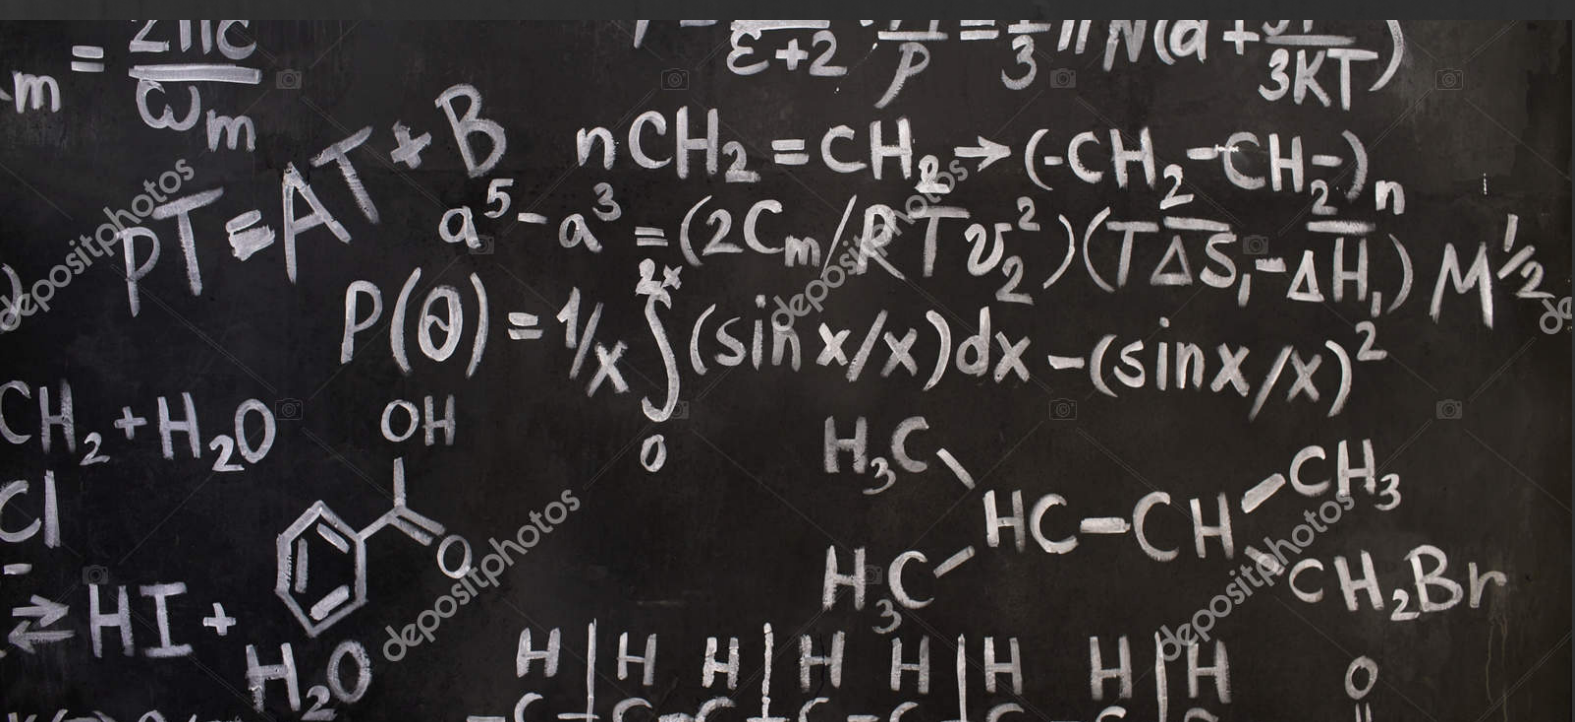 m = 2πc / ω m
ε+2 · p = 1/3 π N(a + 3KT)
pT=AT+B
nCH2=CH2→(-CH2-CH2-)n
a⁵-a³=(2Cm/RTv₂²)(TΔS₁-ΔH₁) M^1/2
P(θ)=1/x ∫₀²ˣ (sin x/x)dx-(sinx/x)²
CH2+H2O
Cl
OH
O
H3C
HC-CH
CH3
H3C
CH2Br
⇌ HI +
H2O
H | H H | H H | H H | H
O
depositphotos
depositphotos
depositphotos
depositphotos
depositphotos